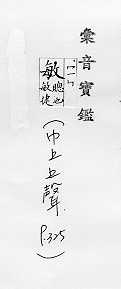 彙音寶鑑
敏聰也
敏捷
(巾上上聲
P.325)